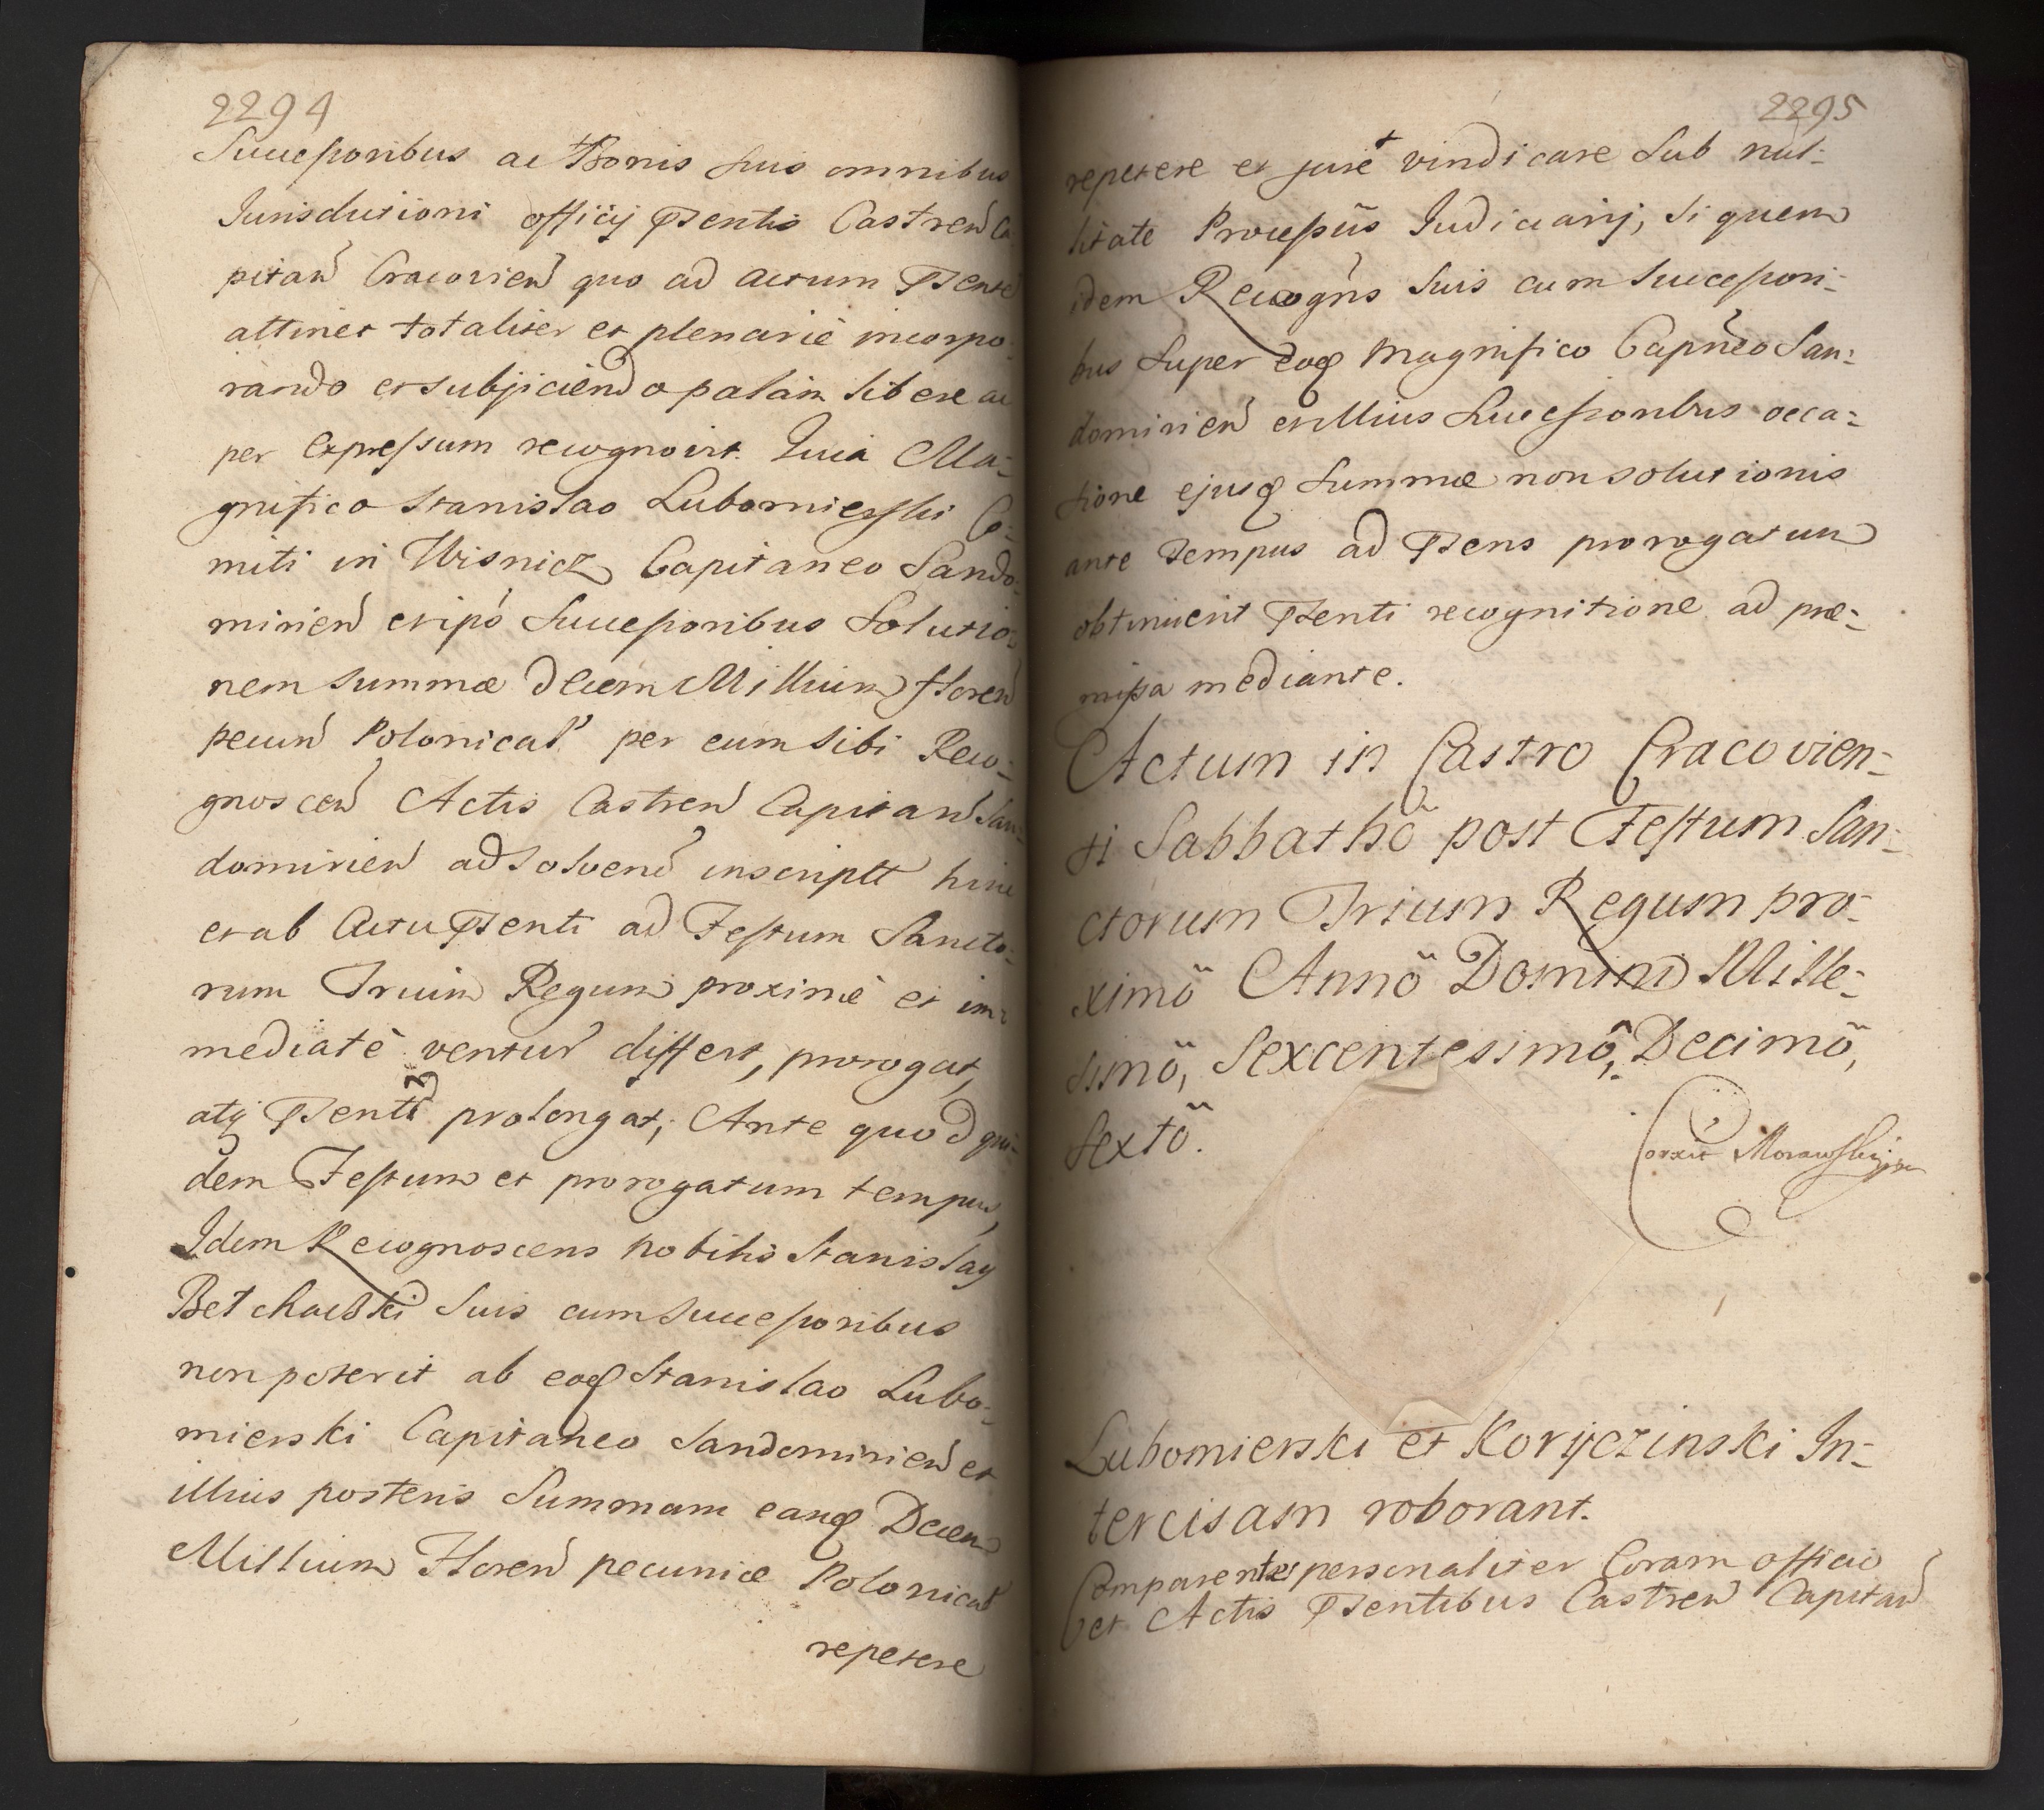 2294
Successoribus ac Bonis suis omnibus
Jurisdictioni officij Psentis Castren Ca
pitan Cracovien quo ad actum Psente
attinet totaliter et plenarie incorpo-
rando et subjiciendo palam libere ac
per expressum recognovit. Quia Ma-
gnifico Stanislao Lubomierski Co-
miti in Wisnicz Capitaneo Sando-
mirien et ipso Successoribus Solutio-
nem summæ decem Millium floren
pecun Polonical per eum sibi Reco-
gnoscen Actis Castren Capitan San-
domirien ad solvend inscriptt hinc
et ab actu Psenti ad Festum Sancto-
rum Trium Regum proximè et im-
mediatè ventur differt, prorogat,
atq Psenti prolongat, Ante quod qui-
dem Festum et prorogatum tempus,
Idem Recognoscens Nobilis Stanislaus
Betchacki suis cum Successoribus
non poterit ab eoq Stanislao Lubo-
mierski Capitaneo Sandomirien et
illius posteris Summam eanq Decem
Millium Floren pecuniæ Polonical
repetere
2295
repetere et jure vindicare sub nul-
litate Processus Judiciarij, si quem
idem Recogns suis cum Successori-
bus super eoq Magnifico Capneo San-
domirien et illius Successoribus occa-
sione ejusq Summæ non solutionis
ante Tempus ad Psens prorogatum
obtinuerit Psenti recognitione ad præ-
missa mediante.
Actum in Castro Cracovien-
si Sabbathō post Festum San-
ctorum Trium Regum pro-
ximō Annō Domini Mille-
simō, Sexcentesimō, Decimō,
Sextō.
Corxit Morawski
Lubomierski et Koryczinski In-
tercisam roborant.
Comparentes personaliter Coram officio
et Actis Psentibus Castren Capitan